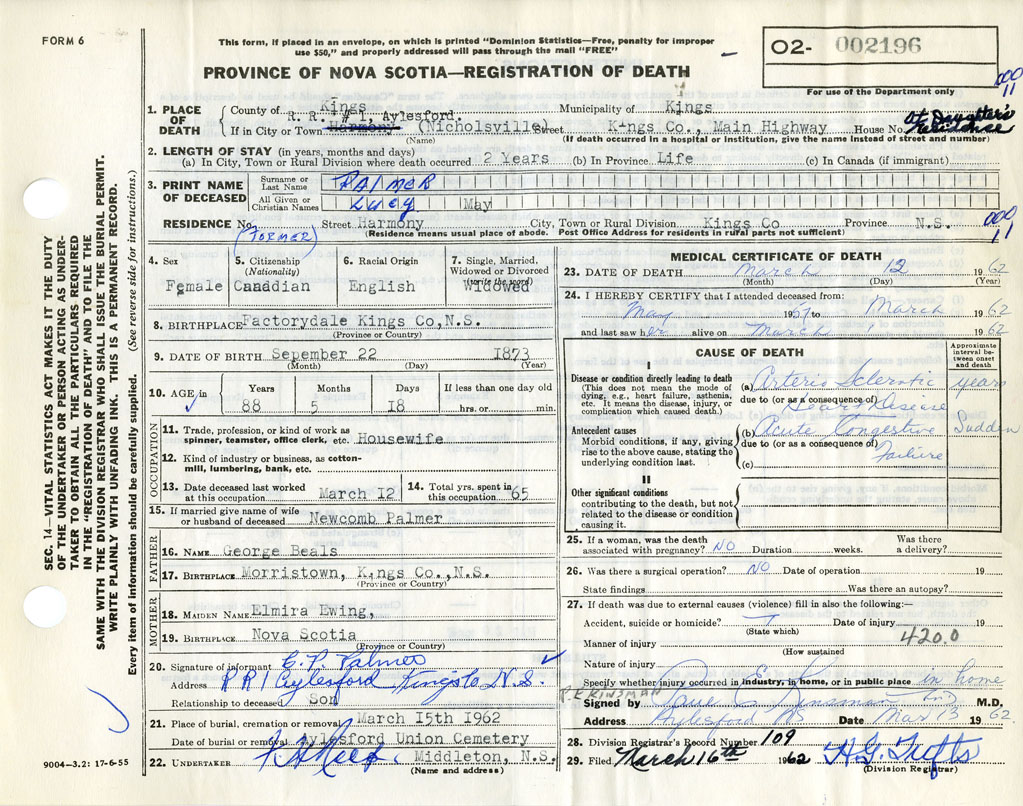 FORM 6
This form, if placed in an envelope, on which is printed "Dominion Statistics—Free, penalty for improper
use $50," and properly addressed will pass through the mail "FREE"
PROVINCE OF NOVA SCOTIA—REGISTRATION OF DEATH
O2- 002196
For use of the Department only
000
11
SEC. 14—VITAL STATISTICS ACT MAKES IT THE DUTY
OF THE UNDERTAKER OR PERSON ACTING AS UNDER-
TAKER TO OBTAIN ALL THE PARTICULARS REQUIRED
IN THE "REGISTRATION OF DEATH" AND TO FILE THE
SAME WITH THE DIVISION REGISTRAR WHO SHALL ISSUE THE BURIAL PERMIT.
WRITE PLAINLY WITH UNFADING INK. THIS IS A PERMANENT RECORD.
Every item of information should be carefully supplied. (See reverse side for instructions.)
1. PLACE OF DEATH
County of Kings Municipality of Kings
R. R. # 1, Aylesford.
If in City or Town Harmony (Nicholsville) Street Kings Co., Main Highway House No. At Daughter's Residence
(Name) (If death occurred in a hospital or institution, give the name instead of street and number)
2. LENGTH OF STAY (in years, months and days)
(a) In City, Town or Rural Division where death occurred 2 Years (b) In Province Life (c) In Canada (if immigrant)
3. PRINT NAME OF DECEASED
Surname or Last Name PALMER
All Given or Christian Names Lucy May
RESIDENCE No. Street Harmony City, Town or Rural Division Kings Co Province N.S.
000
11
(FORMER) (Residence means usual place of abode. Post Office Address for residents in rural parts not sufficient)
4. Sex
Female
5. Citizenship (Nationality)
Canadian
6. Racial Origin
English
7. Single, Married, Widowed or Divorced (write the word)
Widowed
8. BIRTHPLACE Factorydale Kings Co,N.S.
(Province or Country)
9. DATE OF BIRTH Sepember 22 1873
(Month) (Day) (Year)
10. AGE in
Years Months Days If less than one day old
88 5 18 hrs. or min.
OCCUPATION
11. Trade, profession, or kind of work as
spinner, teamster, office clerk, etc. Housewife
12. Kind of industry or business, as cotton-
mill, lumbering, bank, etc.
13. Date deceased last worked
at this occupation March 12
14. Total yrs. spent in
this occupation 65
15. If married give name of wife
or husband of deceased Newcomb Palmer
FATHER
16. NAME George Beals
17. BIRTHPLACE Morristown, Kings Co.,N.S.
(Province or Country)
MOTHER
18. MAIDEN NAME Elmira Ewing,
19. BIRTHPLACE Nova Scotia
(Province or Country)
20. Signature of informant Palmer
Address RR 1 Aylesford Kings N.S.
Relationship to deceased Son
21. Place of burial, cremation or removal March 15th 1962
Date of burial or removal Aylesford Union Cemetery
22. UNDERTAKER Middleton, N.S.
(Name and address)
9004-3.2: 17-6-55
MEDICAL CERTIFICATE OF DEATH
23. DATE OF DEATH March 12 1962
(Month) (Day) (Year)
24. I HEREBY CERTIFY that I attended deceased from:
May 1957 to March 1962
and last saw her alive on March 1 1962
CAUSE OF DEATH
Approximate interval between onset and death
I
Disease or condition directly leading to death
(This does not mean the mode of
dying, e.g., heart failure, asthenia,
etc. It means the disease, injury, or
complication which caused death.)
(a) Arterio Sclerotic years
due to (or as a consequence of)
Heart Disease
Antecedent causes
Morbid conditions, if any, giving
rise to the above cause, stating the
underlying condition last.
(b) Acute Congestive Sudden
due to (or as a consequence of)
Failure
(c)
II
Other significant conditions
contributing to the death, but not
related to the disease or condition
causing it.
25. If a woman, was the death
associated with pregnancy? NO Duration weeks. Was there a delivery?
26. Was there a surgical operation? NO Date of operation 19
State findings Was there an autopsy?
27. If death was due to external causes (violence) fill in also the following:—
Accident, suicide or homicide? Date of injury 19
(State which)
420.0
Manner of injury
(How sustained
Nature of injury
Specify whether injury occurred in industry, in home, or in public place in home
P.E KINSMAN
Signed by Paul E Kinsman M.D.
Address Aylesford NS Date Mar 13 1962.
28. Division Registrar's Record Number 109
29. Filed March 16th 1962 H.G. Tufts
(Division Registrar)